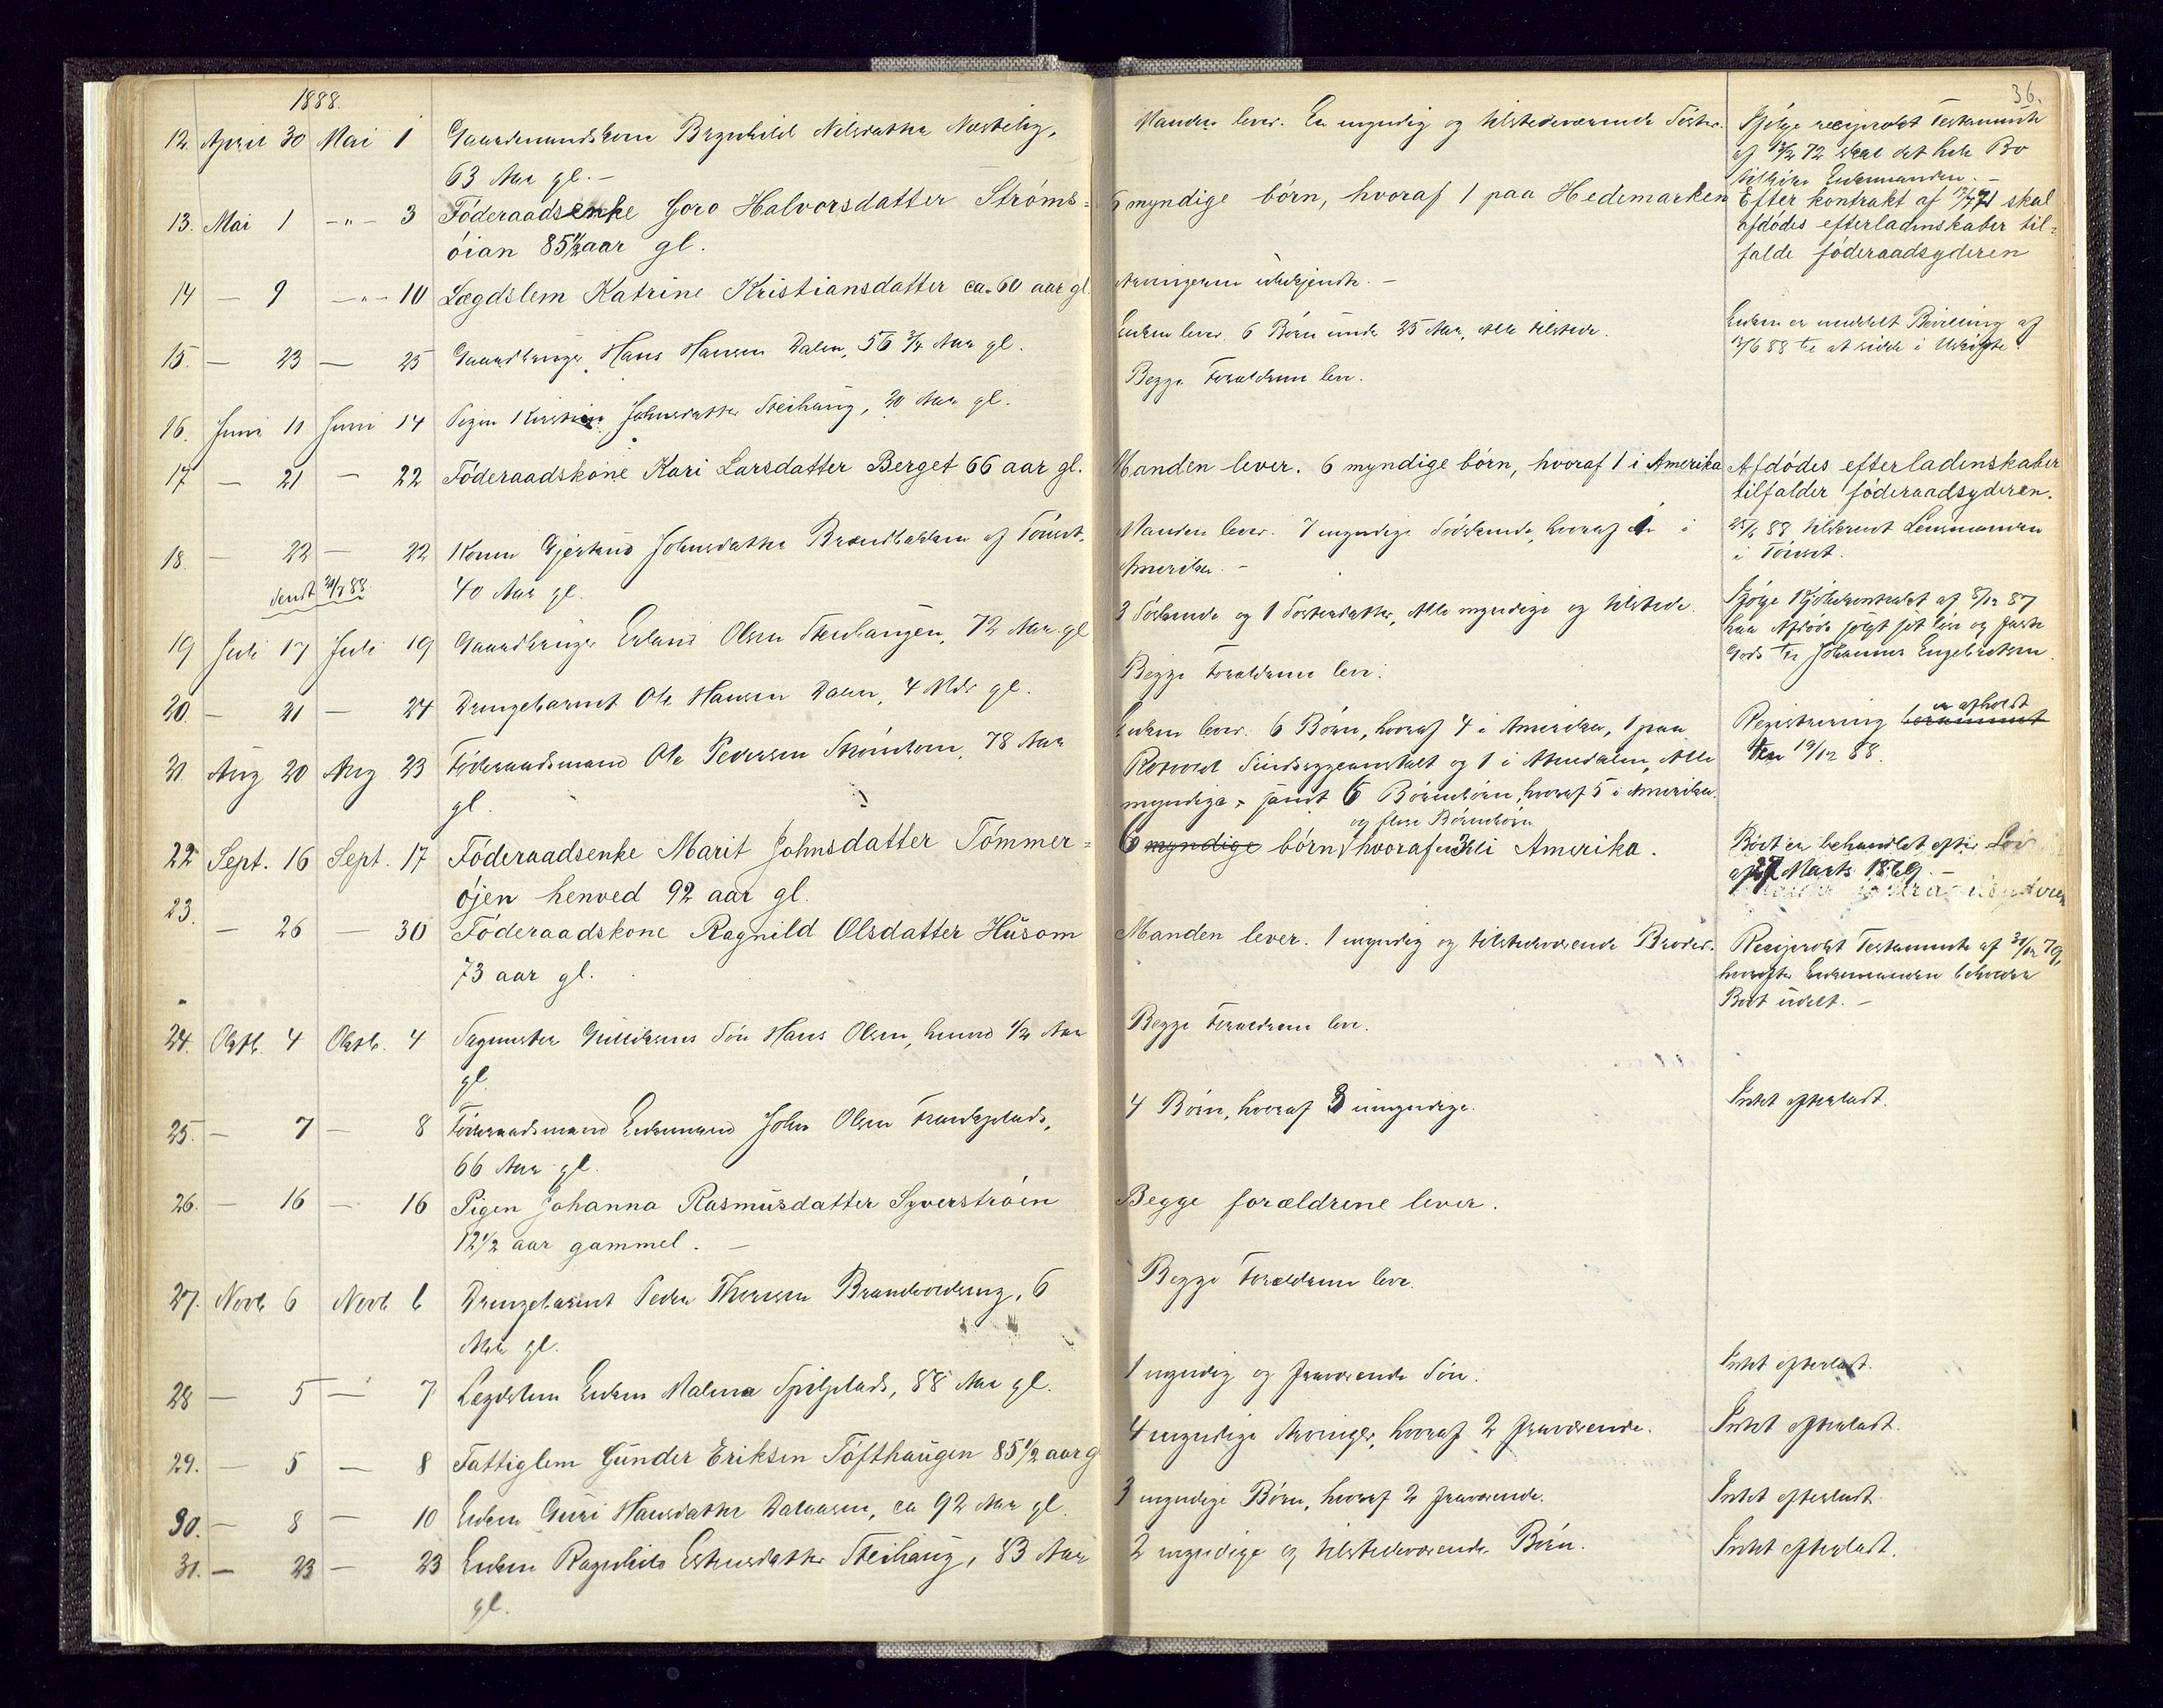 1888.
36.
12. April 30 Mai 1 Gaardmandskone Brynhild Nilsdatter Nestebÿ,
63 Aar gl. –
Manden lever. En myndig og tilstedeværende Søster.
Ifølge reciprokt Testamente
af 13/2 72 skal det hele Bo
tilhøre Enkemanden. –
13. Mai 1 -"- 3 Föderaadsenke Goro Halvorsdatter Ströms=
öian 85 1/2 aar gl.
6 myndige börn, hvoraf 1 paa Hedemarken
Efter kontrakt af 71 skal
afdödes efterladenskaber til=
falde föderaadsyderen
14 – 9 -"- 10 Lægdslem Katrine Kristiansdatter ca. 60 aar gl.
Arvingerne ubekjendte. –
15. – 23 – 25 Gaardbruger Hans Hansen Dalen, 56 3/4 Aar gl.
Enken lever. 6 Børn under 25 Aar, alle tilstede.
Enken er meddelt Bevilling af
13/6 88 til at sidde i Uskifte.
16. Juni 11 Juni 14 Pigen Kirstine Johnsdatter Steihaug, 20 Aar gl.
Begge Forældrene leve.
17 – 21 – 22 Föderaadskone Kari Larsdatter Berget 66 aar gl.
Manden lever. 6 myndige börn, hvoraf 1 i Amerika
Afdödes efterladenskaber
tilfalder föderaadsyderen.
18. – 22 – 22 Konen Gjertrud Johnsdatter Brændbakken af Tönset,
40 Aar gl.
Manden lever. 7 myndige Södskende, hvoraf 1 i
Amerika. –
25/6 88 tilskrevet Lensmanden
i Tönset.
Sendt 88
19 Juli 17 Juli 19 Gaardbruger Erland Olsen Stenhaugen, 72 Aar gl
3 Söskende og 1 Søsterdatter, Alle myndige og tilstede.
Ifølge Kjøbekontrakt af 8/12 87
har Afdøde solgt sit løse og faste
Gods til Johannes Engebretsen.
20. – 21 – 24 Drengebarnet Ole Hansen Dalen, 4 Mdr gl.
Begge Forældrene leve.
21. Aug 20 Aug 23 Föderaadsmand Ole Pedersen 78 Aar
gl.
Enken lever. 6 Børn, hvoraf 4 i Amerika, 1 paa
Rotvold Sindssygeanstalt og 1 i Atnedalen, Alle
myndige, samt 6 Börnebörn, hvoraf 5 i Amerika.
er afholdt
Registrering berammet
den 19/12 88.
22 Sept. 16 Sept. 17 Föderaadsenke Marit Johnsdatter Tömmer=
öjen henved 92 aar gl.
og flere Börnebörn
6 myndige börn hvoraf 3 i Amerika.
Boet er behandlet efter Lov
af 27 Marts 1869. –
23. – 26 – 30 Föderaadskone Ragnild Olsdatter Husom
73 aar gl.
Manden lever. 1 myndig og tilstedeværende Broder.
Reciprokt Testamente af 31/12 79,
hvorefter Enkemanden beholder
Boet udelt. –
24. Oktb. 4 Oktb. 4 Sagmester Gulliksens Søn Hans Olsen, henved 1/2 Aar
gl.
Begge Forældrene leve.
25. – 7 – 8 Föderaadsmand Enkemand John Olsen
66 Aar gl.
4 Børn, hvoraf 3 umyndige.
Intet efterladt.
26. – 16 – 16 Pigen Johanna Rasmusdatter Syverströen
12 1/2 aar gammel. –
Begge forældrene lever.
27. Novb 6 Novb 6 Drengebarnet Peder Thoresen Brandvoldeng, 6
Mdr gl.
Begge Forældrene leve.
28 – 5 – 7 Lægdslem Enken Malena Spelplads, 88 Aar gl.
1 myndig og fraværende Søn.
Intet efterladt.
29. – 5 – 8 Fattiglem Gunder Eriksen Töfthaugen 85 1/2 aar g
4 myndige Arvinger, hvoraf 2 fraværende.
Intet efterladt.
30. – 8 – 10 Enken Guri Hansdatter Dalaasen, ca 92 Aar gl.
3 myndige Börn, hvoraf 2 fraværende.
Intet efterladt.
31. – 23 – 23 Enken Ragnhild Estensdatter Steihaug, 83 Aar
gl.
2 myndige og tilstedeværende Börn.
Intet efterladt.